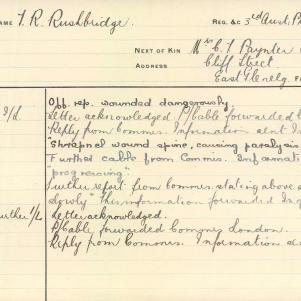 NAME T. R. Rushbridge. REG. &C 3rd Aust. P
NEXT OF KIN Mrs C. T. Paynter
ADDRESS Cliff Street
East Glenelg
I/L Off. rep. wounded dangerously
Letter acknowledged P/Cable forwarded
Reply from Commrs. Information sent I
"Shrapnel wound spine, causing paralysis
Further cable from Commrs. Informat
"progressing"
Further report from commrs. stating above
slowly" This information forwarded
Further I/L Letter acknowledged.
P/Cable forwarded Commrs London.
Reply from Commrs. Information